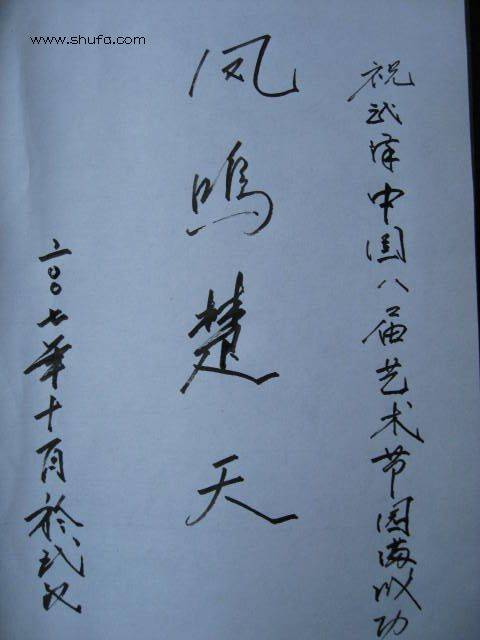 www.shufa.com
祝武漢中国八届艺术节圆满成功
凤鸣楚天
二〇〇七年十月於武汉